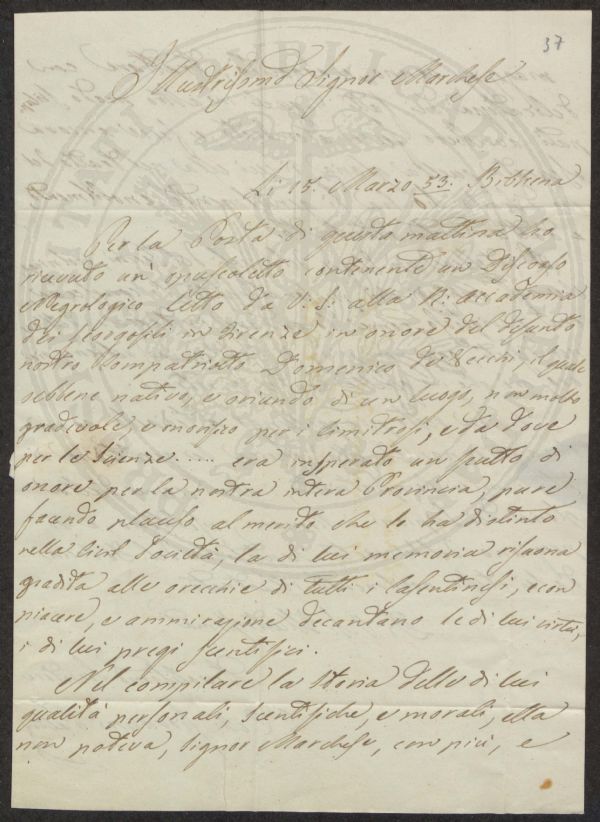 37
Illustrissimo Signor Marchese
Li 15. Marzo 53. Bibbiena
Per la Posta di questa mattina ho
ricevuto un' opuscoletto contenente un Discorso
Negrologico letto da V. S. alla R. Accademia
dei Georgofili in Firenze in onore del defunto
nostro Compatriotto Domenico de Vecchi, il quale
sebbene nativo, e oriundo di un luogo, non molto
gradevole, e per i limitrofi, e da dove
per le Scienze..... era insperato un frutto di
onore per la nostra intera Provincia, pure
facendo plauso al merito che lo ha distinto
nella Civil Società, la di lui memoria risuona
gradita alle orecchie di tutti i Casentinesi, e con
piacere, e ammirazione decantano le di lui virtù,
i di lui pregi scentifici.
Nel compilare la Storia delle di lui
qualità personali, scentifiche, e morali, ella
non poteva, Signor Marchese, con più, e